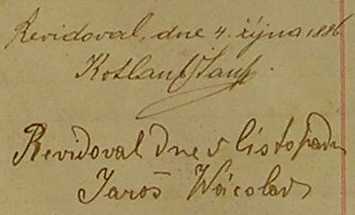 Revidoval, dne 4. října 1886
Revidoval dne v listopadu
Jaroš Wácolav